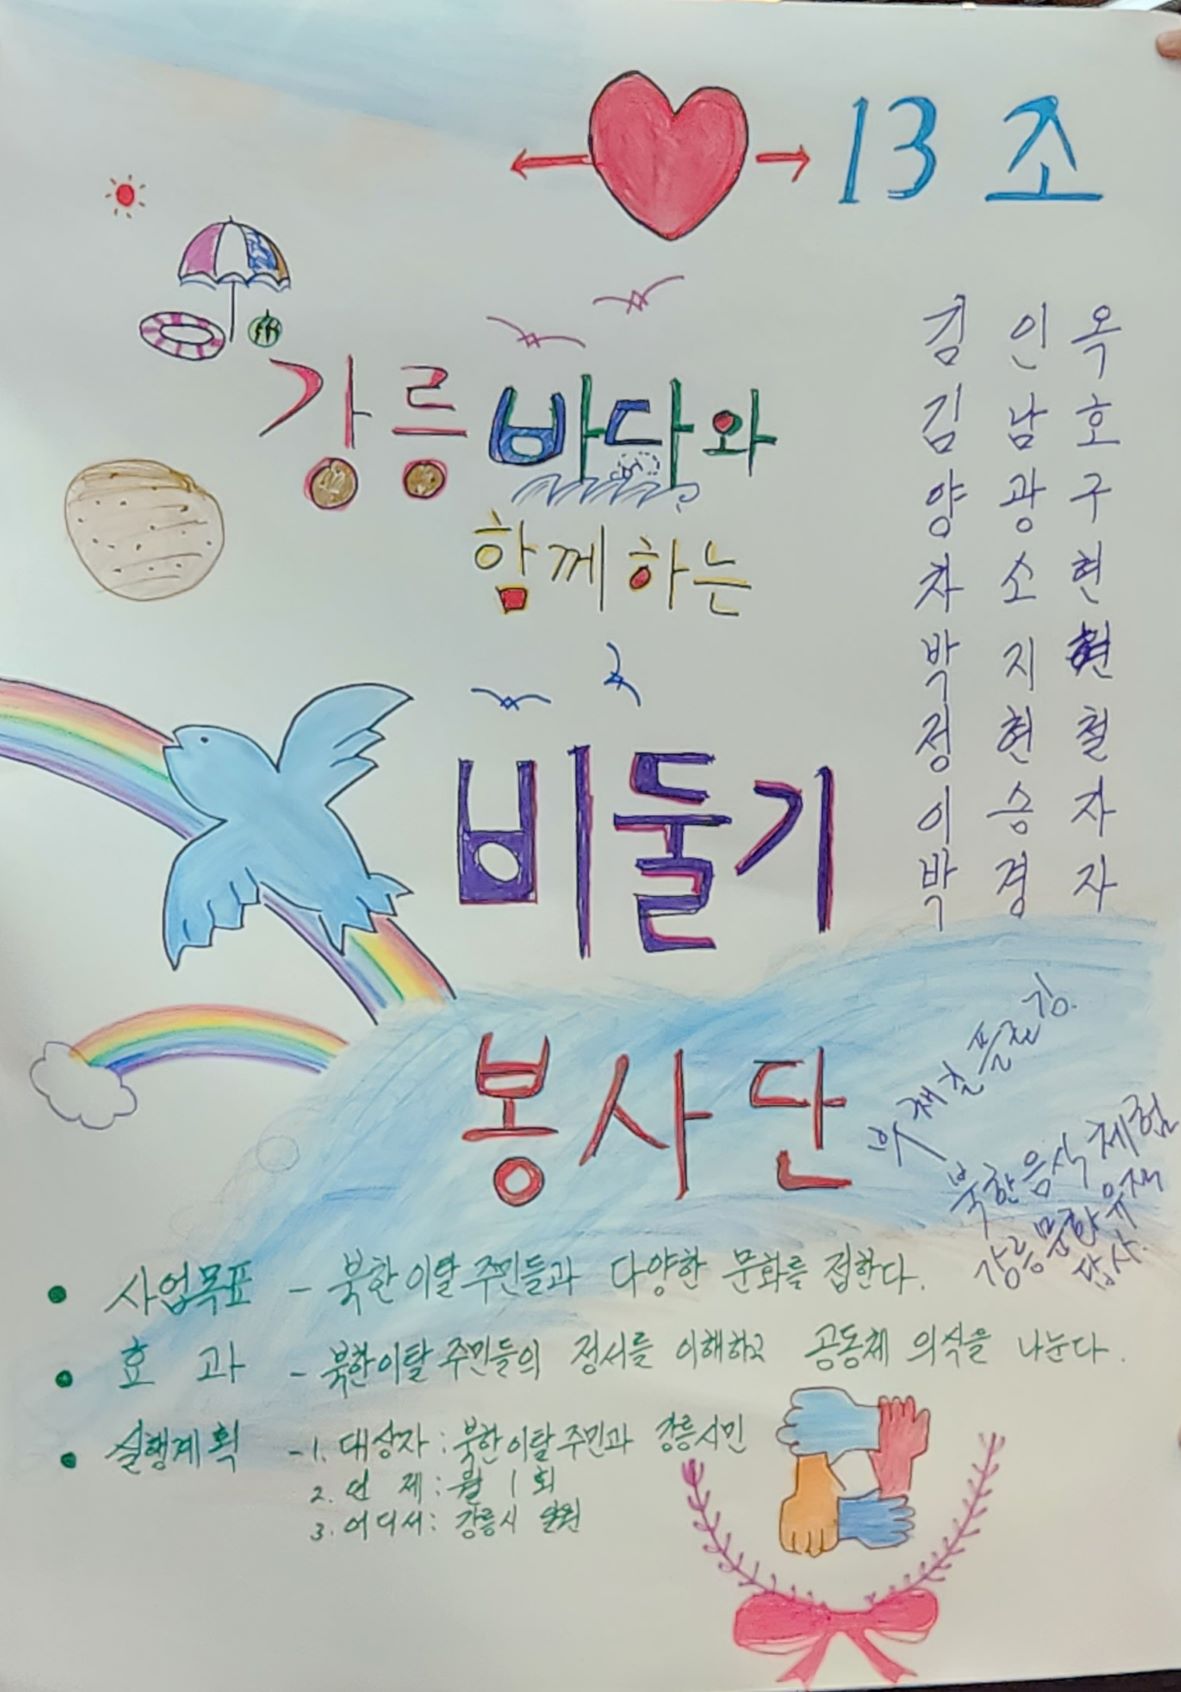 13조
강릉 바다와
함께하는
비둘기
봉사단
김인옥
김남호
양광구
차소현
박지현
정현철
이승자
박경자
북한음식체험
강릉문화유적
답사.
• 사업목표 - 북한이탈주민들과 다양한 문화를 접한다.
• 효과 - 북한이탈주민들의 정서를 이해하고 공동체 의식을 나눈다.
• 실행계획 - 1. 대상자 : 북한이탈주민과 강릉시민
2. 언제 : 월 1회
3. 어디서 : 강릉시 일원